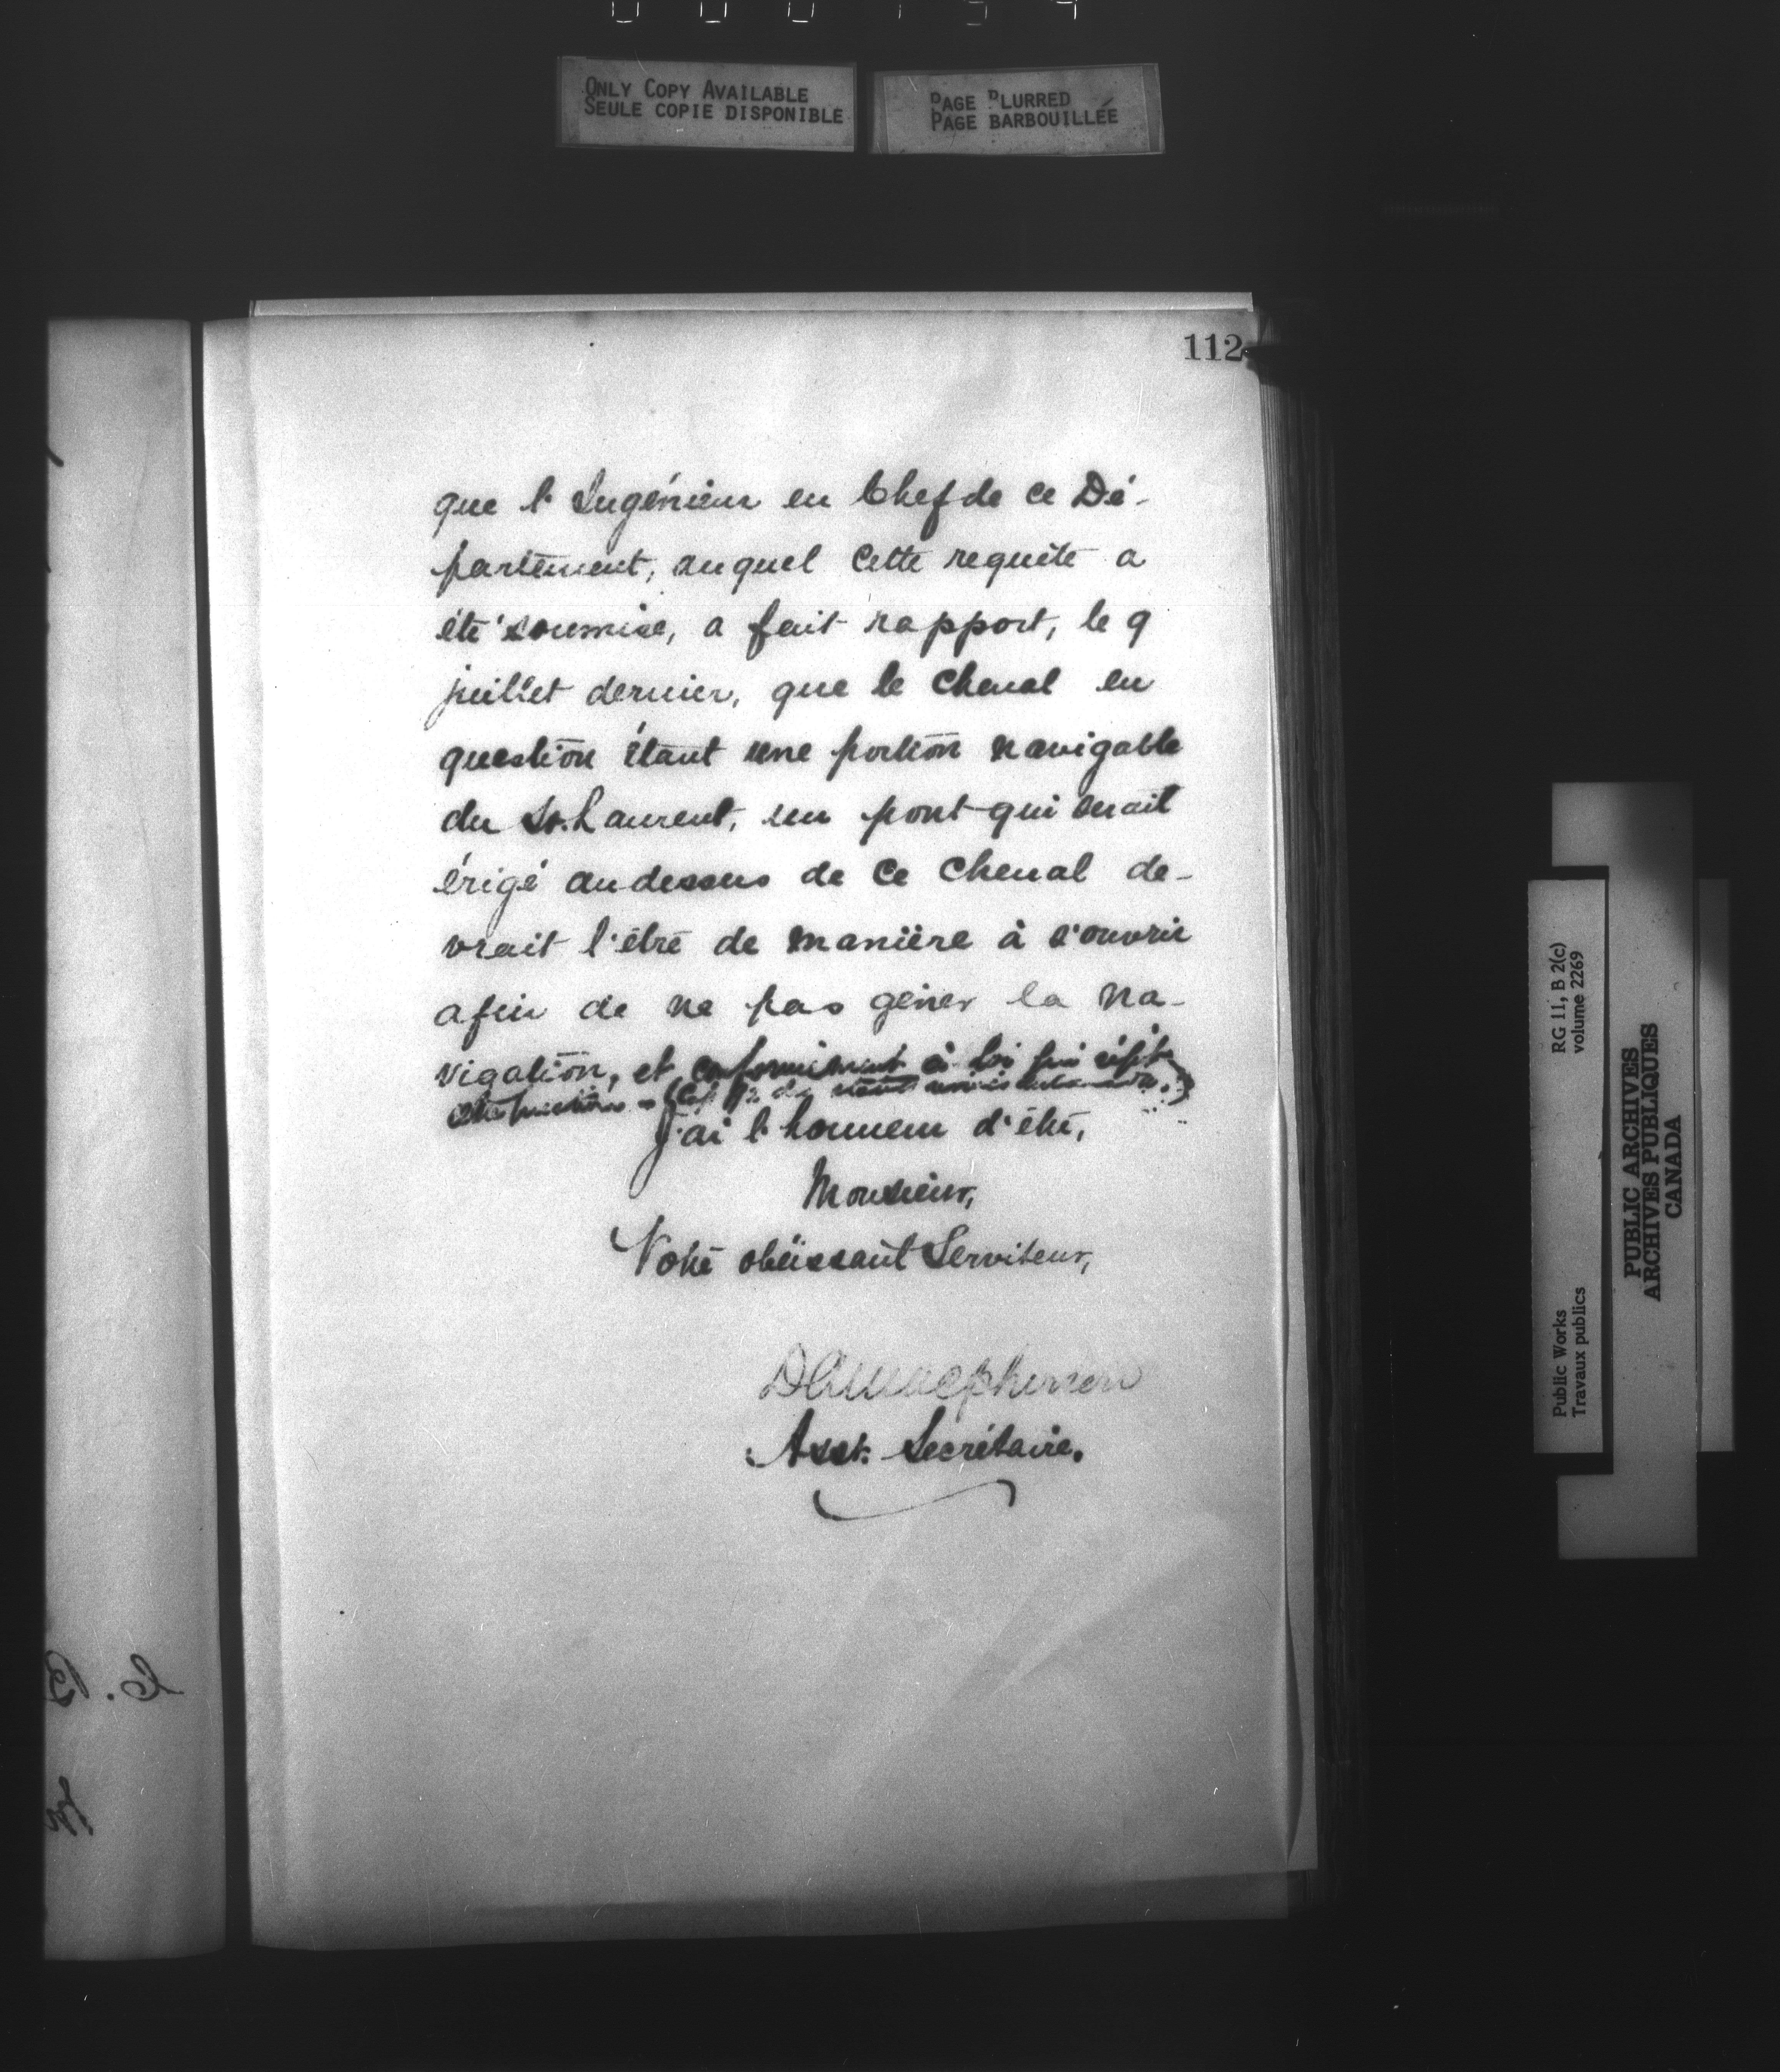 ONLY COPY AVAILABLE
SEULE COPIE DISPONIBLE
PAGE BLURRED
PAGE BARBOUILLÉE
112
que l'Ingénieur en Chef de ce Dé-
partement, auquel cette requête a
été soumise, a fait rapport, le 9
juillet dernier, que le chenal en
question étant une portion navigable
du St. Laurent, un pont qui serait
érigé au dessus de ce chenal de-
vrait l'être de manière à s'ouvrir
afin de ne pas gêner la na-
vigation, et conformément à loi
J'ai l'honneur d'être,
Monsieur,
Votre obéissant Serviteur,
Asst. Secrétaire.
RG 11, B 2(c)
volume 2269
Public Works
Travaux publics
PUBLIC ARCHIVES
ARCHIVES PUBLIQUES
CANADA